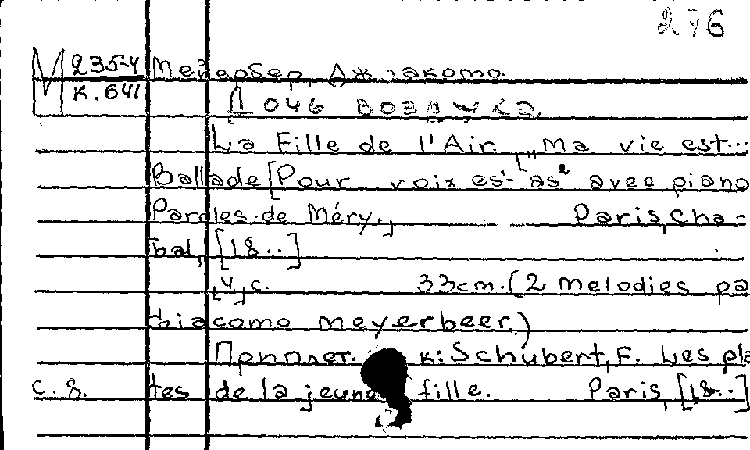 276
М 235-4 Мейербер, Джiакомо
к. 641 Дочь воздуха.
La Fille de l'Air. „Ma vie est...
Ballade [Pour voix es- as² avec piano
Paroles de Méry.] Paris, Cha-
bal, [18..]
[4] c. 33cm. (2 melodies pa
Giacomo Meyerbeer.)
Припллет. к: Schubert, F. Les pla
с. 8. tes de la jeune fille. Paris, [18..]